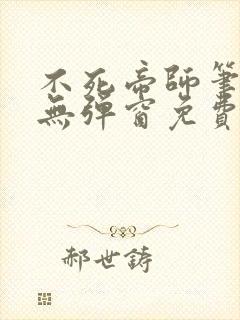 不死帝師筆
無彈窗免費
郝世鑄